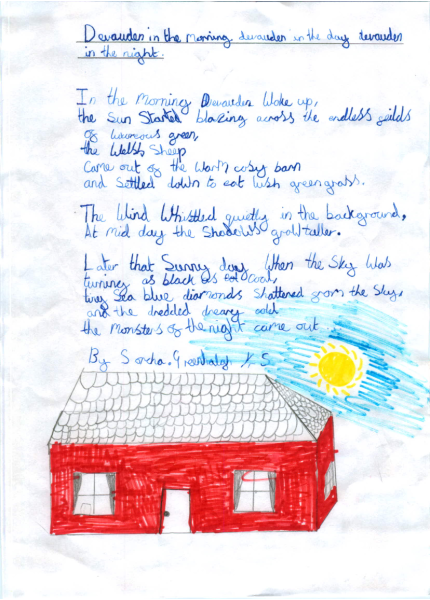 Devauden in the Morning devauden in the day devauden
in the night.
In the Morning Devauden Woke up,
the Sun Started blazing across the endless feilds
of green,
the Welsh Sheep
Came out of the Warm cosy barn
and Settled down to eat lush green grass.
The Wind Whistled quietly in the background,
At mid day the Shadows grow taller.
Later that Sunny day When the Sky Was
turning as black as coal,
tiny Sea blue diamonds Shattered from the Sky,
and the dredded dreary cold
the Monsters of the night came out
By Sorcha.